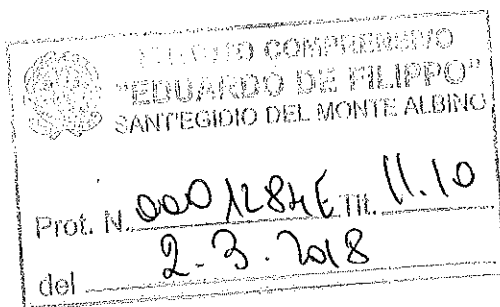 ISTITUTO COMPRENSIVO
"EDUARDO DE FILIPPO"
SANT'EGIDIO DEL MONTE ALBINO
Prot. N. 0001284E Tit. 11.10
del 2-3.2018